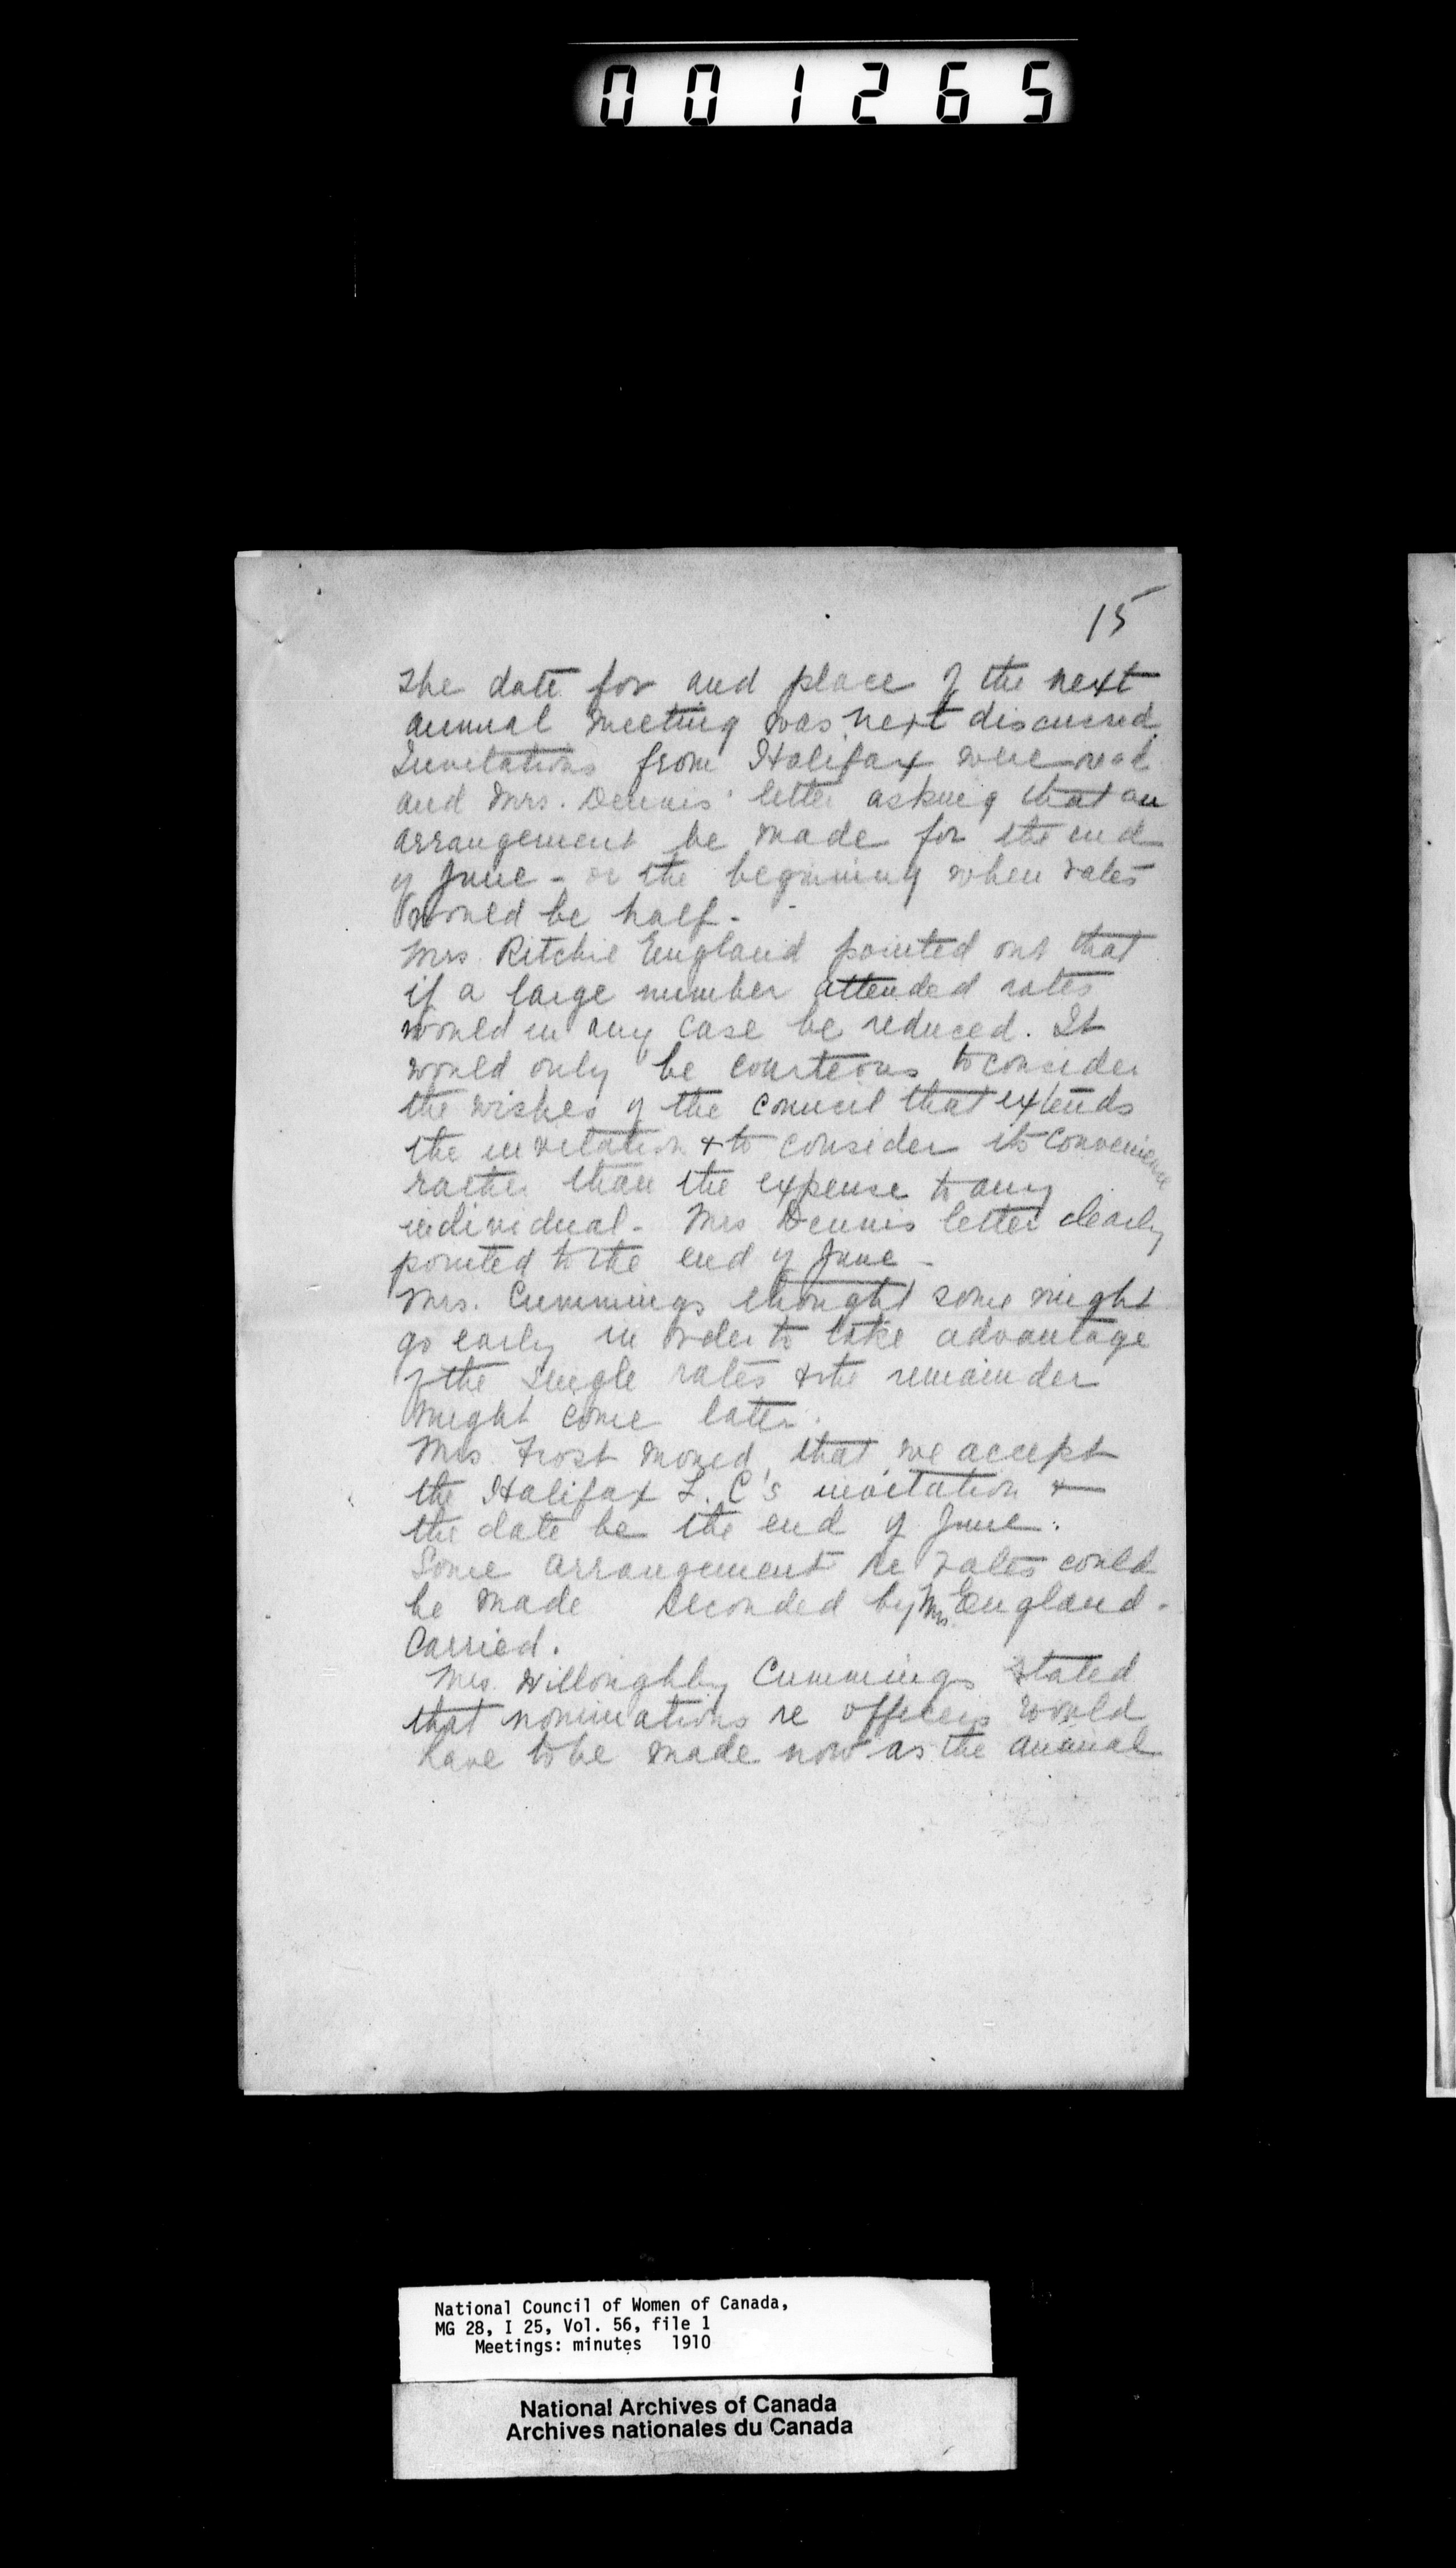 001265
15
The date for and place of the next
annual meeting was next discussed.
Invitations from Halifax were read
and Mrs. Dennis' letter asking that an
arrangement be made for the end
of June - or the beginning when rates
would be half -
Mrs. Ritchie England pointed out that
if a large number attended rates
would in any case be reduced. It
would only be courteous to consider
the wishes of the Council that extends
the invitation & to consider its convenience
rather than the expense to any
individual - Mrs Dennis letter clearly
pointed to the end of June -
Mrs. Cummings thought some might
go early in order to take advantage
of the single rates & the remainder
might come later.
Mrs. Frost moved, that we accept
the Halifax L. C's invitation &
the date be the end of June.
Some arrangement re rates could
be made seconded by Mrs. England.
Carried.
Mrs. Willoughby Cummings stated
that nominations re officers would
have to be made now as the annual
National Council of Women of Canada,
MG 28, I 25, Vol. 56, file 1
Meetings: minutes 1910
National Archives of Canada
Archives nationales du Canada